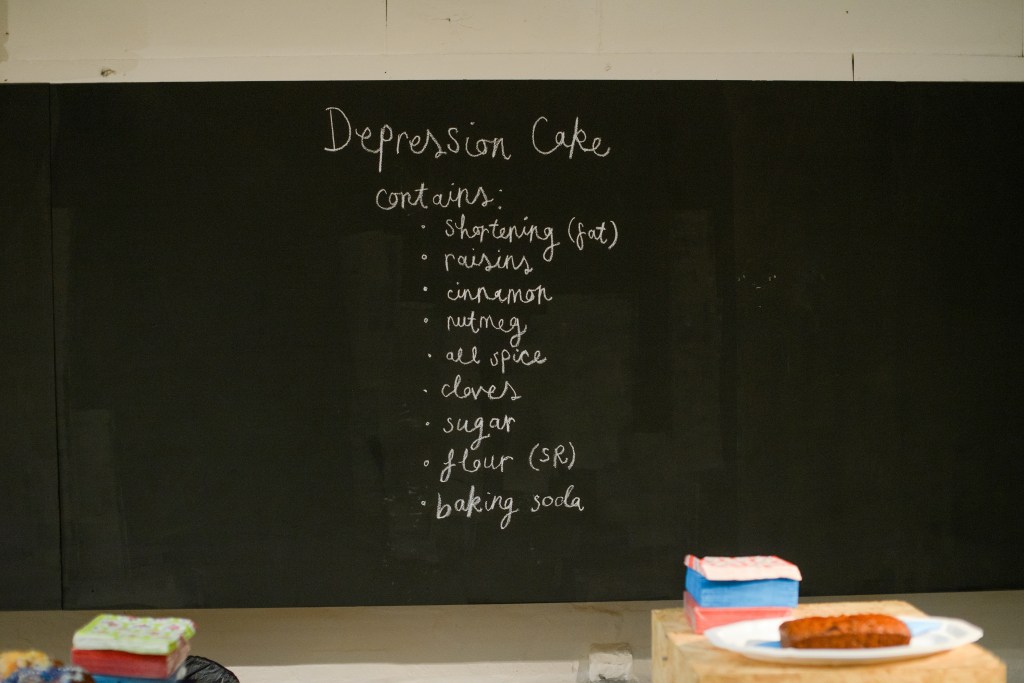 Depression Cake
contains:
• shortening (fat)
• raisins
• cinnamon
• nutmeg
• all spice
• cloves
• sugar
• flour (SR)
• baking soda